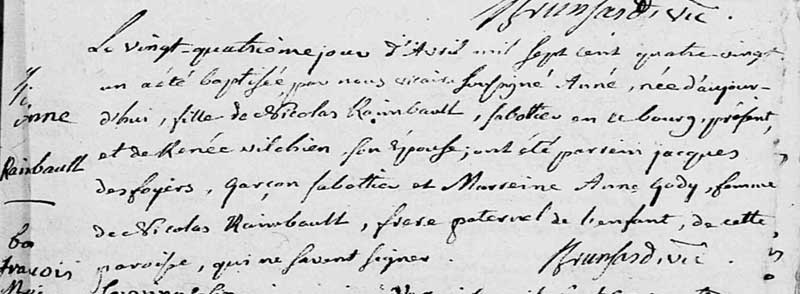 Brunsard, vic.
Le vingt-quatrième jour d'Avril mil sept cent quatre-vingt
un a été baptisée, par nous vicaire soussigné Anne, née d'aujour-
d'hui, fille de Nicolas Raimbault, sabottier en ce bourg, présent,
Anne
et de Renée son épouse; ont été parrein jacques
Raimbault
desfoyers, garçon sabottier et Marreine Anne Gody, femme
de Nicolas Raimbault, frere paternel de l'enfant, de cette
paroisse, qui ne savent signer. Brunsard, vic.
françois